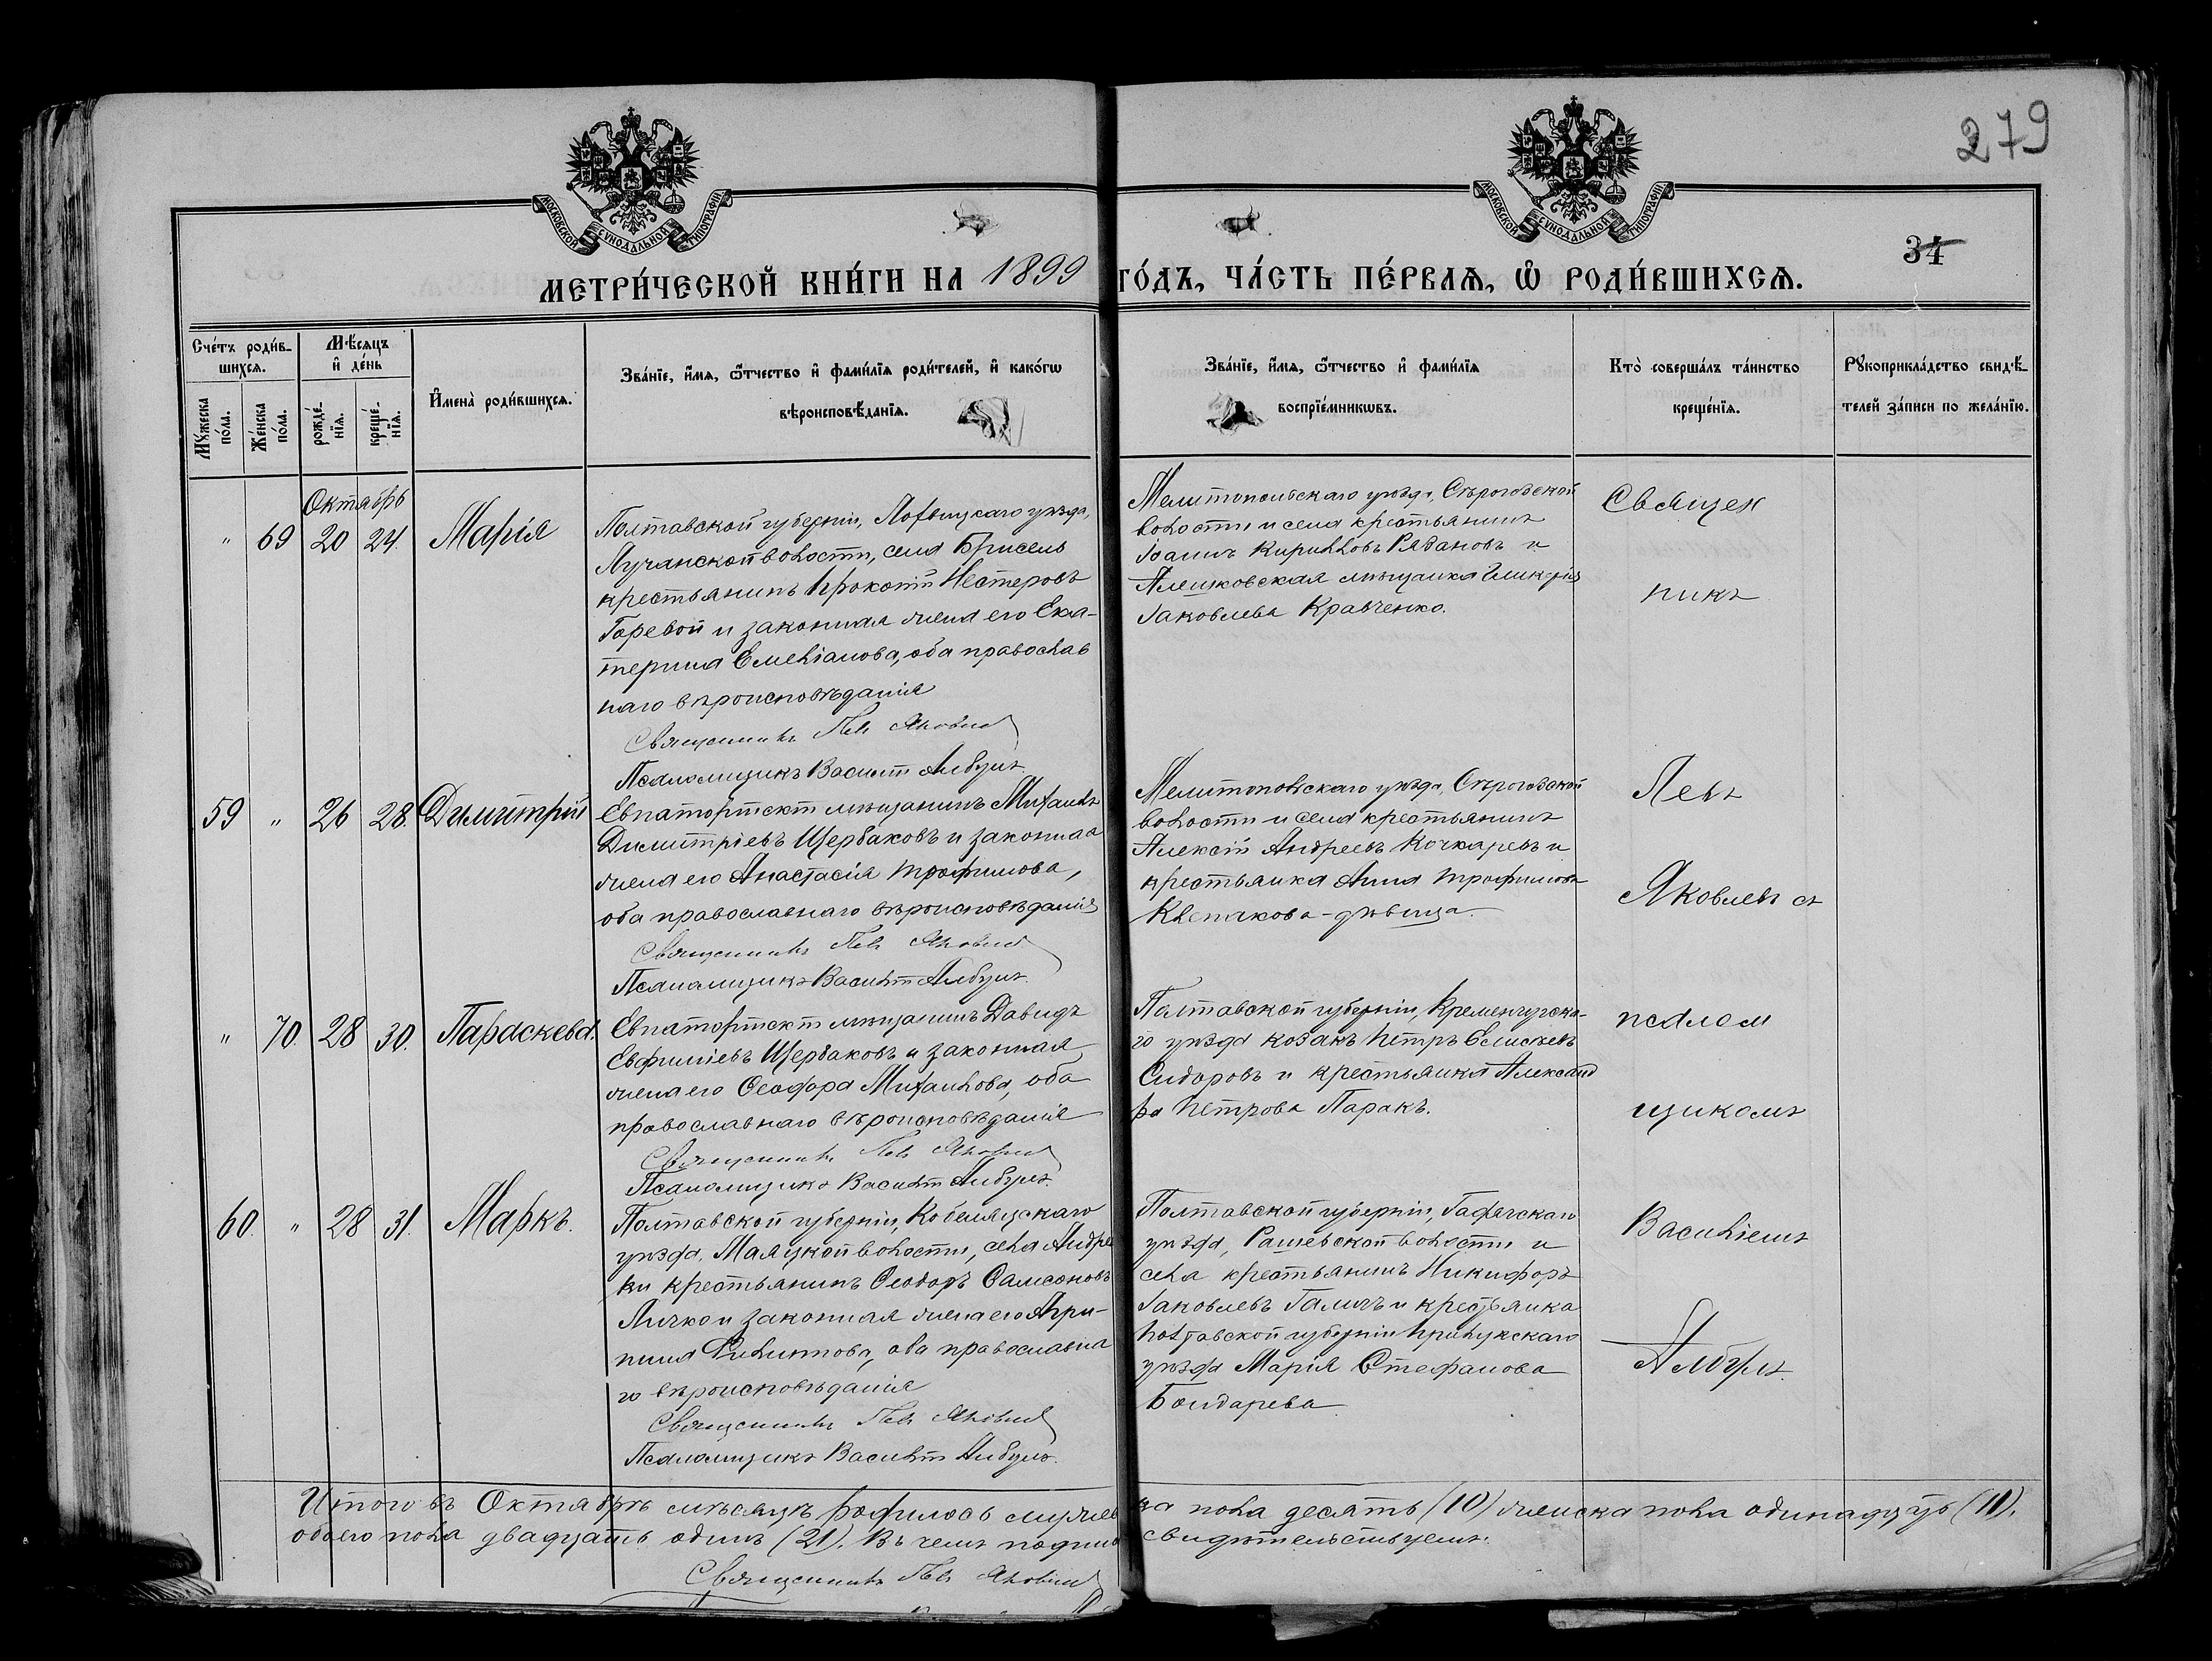 279
34
МОСКОВСКОЙ СѴНОДАЛЬНОЙ ТИПОГРАФІИ
МОСКОВСКОЙ СѴНОДАЛЬНОЙ ТИПОГРАФІИ
МЕТРИ́ЧЕСКОЙ КНИ́ГИ НА 1899 ГО́ДЪ, ЧА́СТЬ ПЕ́РВАѦ, Ѡ҆ РОДИ́ВШИХСѦ.
Сче́тъ роди́в-
шихсѧ.
Мꙋ́жеска по́ла.
Же́нска по́ла.
Мѣ́сѧцъ
и҆ де́нь
рожде́-
нїѧ.
креще́-
нїѧ.
И҆мена̀ роди́вшихсѧ.
Зва́нїе, и҆́мѧ, ѻ҆́тчество и҆ фами́лїѧ роди́телей, и҆ како́гѡ
вѣроисповѣ́данїѧ.
Зва́нїе, и҆́мѧ, ѻ҆́тчество и҆ фами́лїѧ
воспрїе́мникѡвъ.
Кто̀ соверша́лъ та́инство
креще́нїѧ.
Рꙋкоприкла́дство свидѣ́-
телей за́писи по жела́нїю.
Октябрь
" 69 20 24. Марія
Полтавской губерніи, Лохвицкаго уѣзда,
Лучанской волости, села Брисель
крестьянинъ Прокопій Нестеровъ
Горевой и законная жена его Ека-
терина Емеліанова, оба православ
наго вѣроисповѣданія
Священникъ Левъ Яковлев
Псаломщикъ Василій Албулъ.
Мелитопольскаго уѣзда, Сѣрогозской
волости и села крестьянинъ
Іоаннъ Кирилловъ Рябановъ и
Алешковская мѣщанка Гликерія
Іаковлева Кравченко.
Священ
никъ
59 " 26 28. Димитрій
Евпаторійскій мѣщанинъ Михаилъ
Димитріевъ Щербаковъ и законная
жена его Анастасія Трофимова,
оба православнаго вѣроисповѣданія
Священникъ Левъ Яковлев
Псаломщикъ Василій Албулъ.
Мелитопольскаго уѣзда, Сѣрогозской
волости и села крестьянинъ
Алексій Андреевъ Кочкаревъ и
крестьянка Анна Трофимова
Клепикова - дѣвица.
Левъ
Яковлевъ съ
" 70. 28 30. Параскева.
Евпаторійскій мѣщанинъ Давидъ
Евфиміевъ Щербаковъ и законная
жена его Ѳеодора Михаилова, оба
православнаго вѣроисповѣданія
Священникъ Левъ Яковлев
Псаломщикъ Василій Албулъ.
Полтавской губерніи, Кременчугска-
го уѣзда козакъ Петръ Елисѣевъ
Сидоровъ и крестьянка Александ
ра Петрова Паракъ.
псалом
щикомъ
60. " 28 31. Маркъ.
Полтавской губерніи, Кобеляцкаго
уѣзда, Маяцкой волости, села Андре
ки крестьянинъ Ѳеодоръ Самсоновъ
Личко и законная жена его Агри-
пина Филиппова, оба православна
го вѣроисповѣданія
Священникъ Левъ Яковлев
Псаломщикъ Василій Албулъ.
Полтавской губерніи, Гадячскаго
уѣзда, Рашевской волости и
села крестьянинъ Никифоръ
Іаковлевъ Галичъ и крестьянка
Полтавской губерніи Прилукскаго
уѣзда Марія Стефанова
Бондарева
Василіемъ
Албулъ.
Итого въ Октябрѣ мѣсяцѣ родилось мужеска пола десять (10) женска пола одинадцть (11).
обоего пола двадцать одинъ (21). Въ чемъ подписомъ свидѣтельствуемъ.
Священникъ Левъ Яковлев